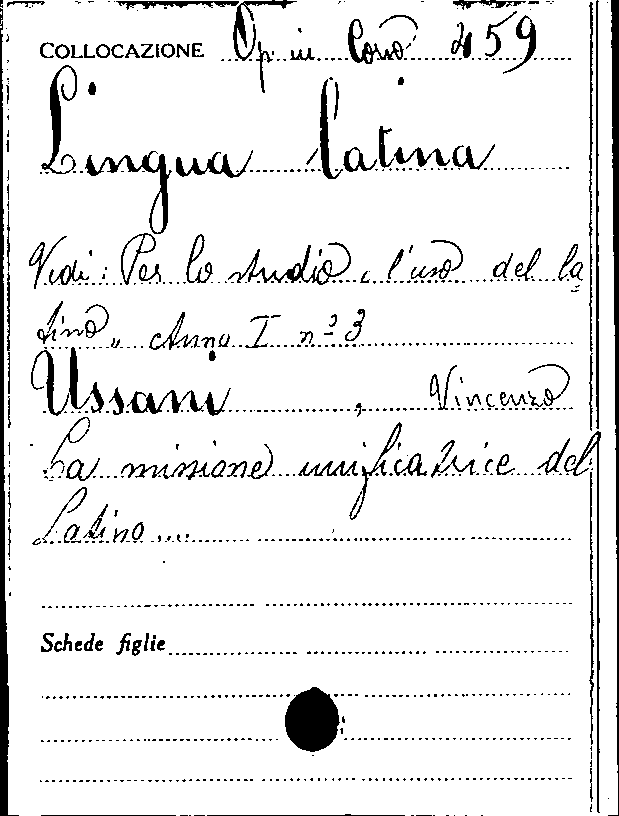 COLLOCAZIONE Op. in Corso 459
Lingua latina
Vedi: Per lo studio e l'uso del la=
tino „ Anno I nº 3
Ussani , Vincenzo
La missione unificatrice del
Latino....
Schede figlie